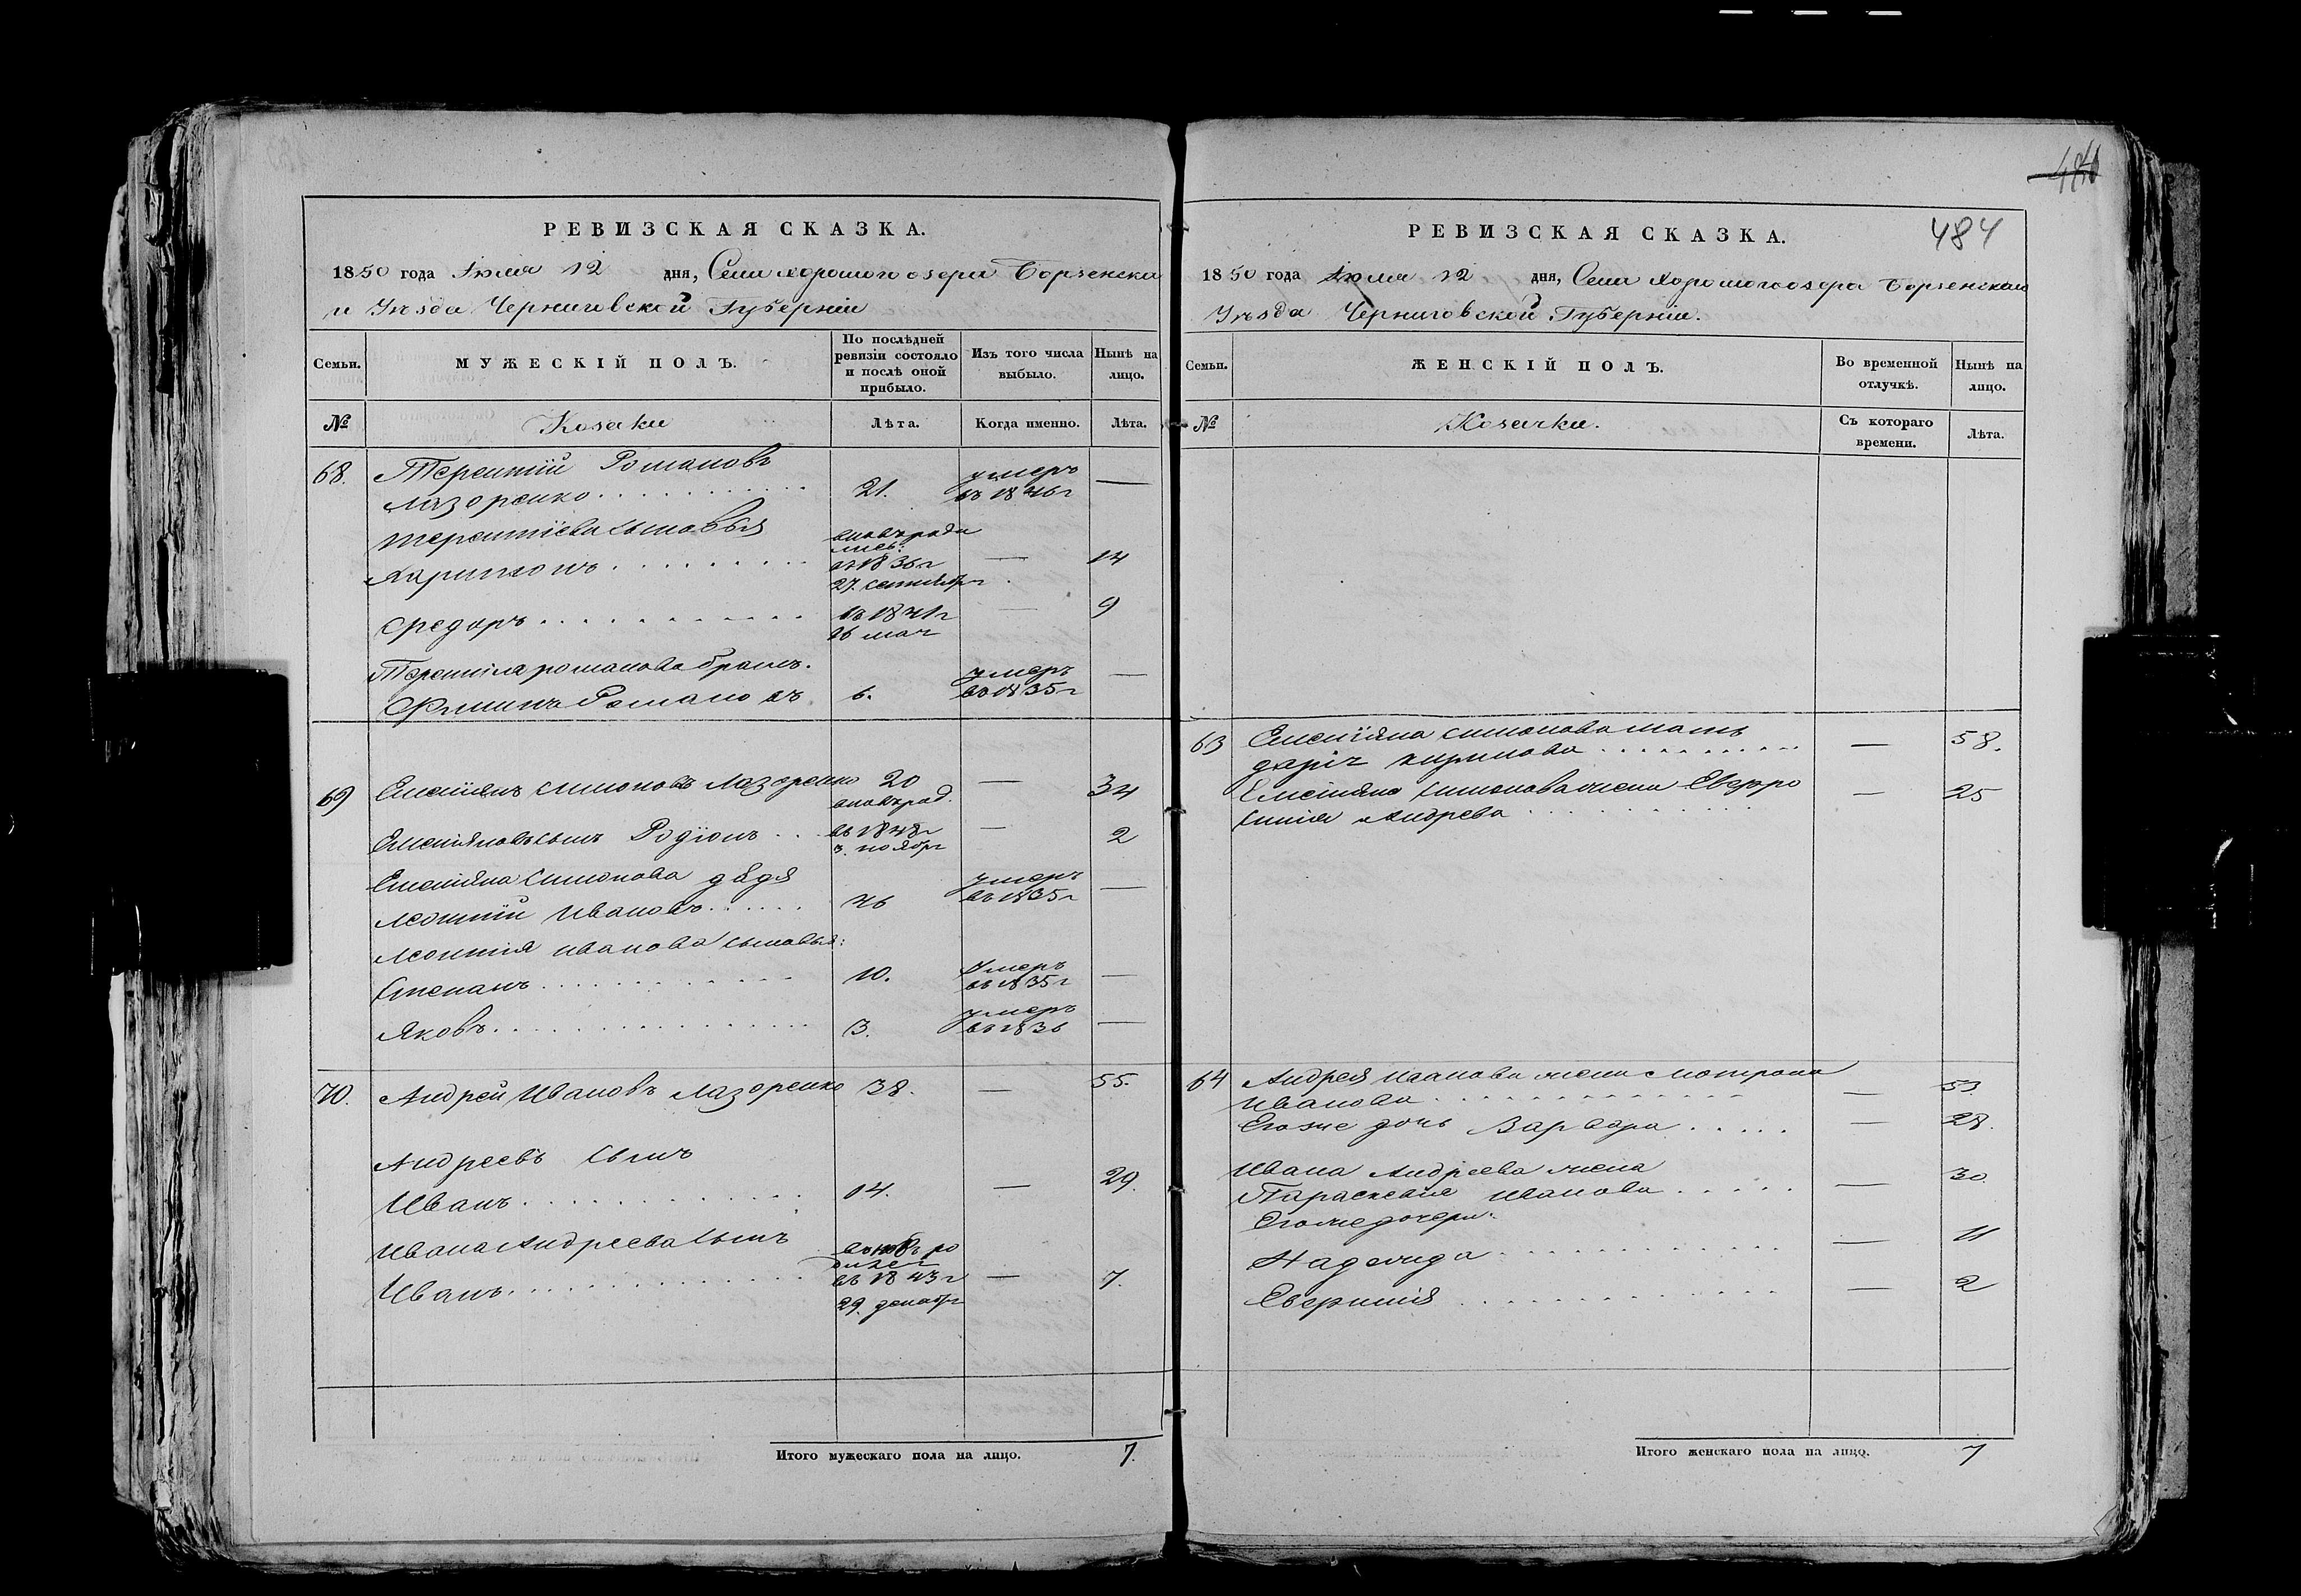 РЕВИЗСКАЯ СКАЗКА.
1850 года Июля 12 дня, Села Хорошого озера Борзенска
го Уѣзда Черниговской Губерніи
Семьи.
МУЖЕСКІЙ ПОЛЪ.
По послѣдней ревизіи состояло и послѣ оной прибыло.
Изъ того числа выбыло.
Нынѣ на лицо.
№
Козаки
Лѣта.
Когда именно.
Лѣта.
68. Терентій Романовъ
Лазоренко 21. умеръ въ 1846 г —
Терентіева сыновья вновь роди лись:
Харитонъ въ 1836 г 27. сентябр — 14
Федоръ въ 1841 г 26 мая — 9
Терентія романова братъ.
Романовъ 6. умеръ въ 1835 г —
69 Емеліянъ симоновъ Лазоренко 20 — 34
Емеліяновъ сынъ Родіонъ вновь род. въ 1848 г 3. ноябр — 2
Емеліяна Симонова дядя
Леонтій Ивановъ 46 умеръ въ 1835 г —
Леонтія иванова сыновья:
Степанъ 10. умеръ въ 1835 г —
Яковъ 3. умеръ въ 1836 —
70. Андрей Ивановъ Лазоренко 38. — 55.
Андреевъ сынъ
Иванъ 14. — 29.
Ивана Андреева сынъ
Иванъ вновь ро въ 1843 г 29. декабр — 7.
Итого мужескаго пола на лицо. 7.
484
РЕВИЗСКАЯ СКАЗКА.
1850 года Июля 12 дня, Села Хорошогоозера Борзенскаго
Уѣзда Черниговской Губерніи.
Семьи.
ЖЕНСКІЙ ПОЛЪ.
Во временной отлучкѣ.
Нынѣ на лицо.
№
Козачки.
Съ котораго времени.
Лѣта.
63 Емеліяна симонова мать
дарія — 58.
Емеліяна Симонова жена Евфро
синія Андрева — 25
64 Андрея иванова жена мотрона
Иванова — 53.
Егоже дочь Варвара — 28.
Ивана Андреева жена
Параскевія иванова — 30.
Егоже дочери.
Надежда — 11
— 2
Итого женскаго пола на лицо. 7